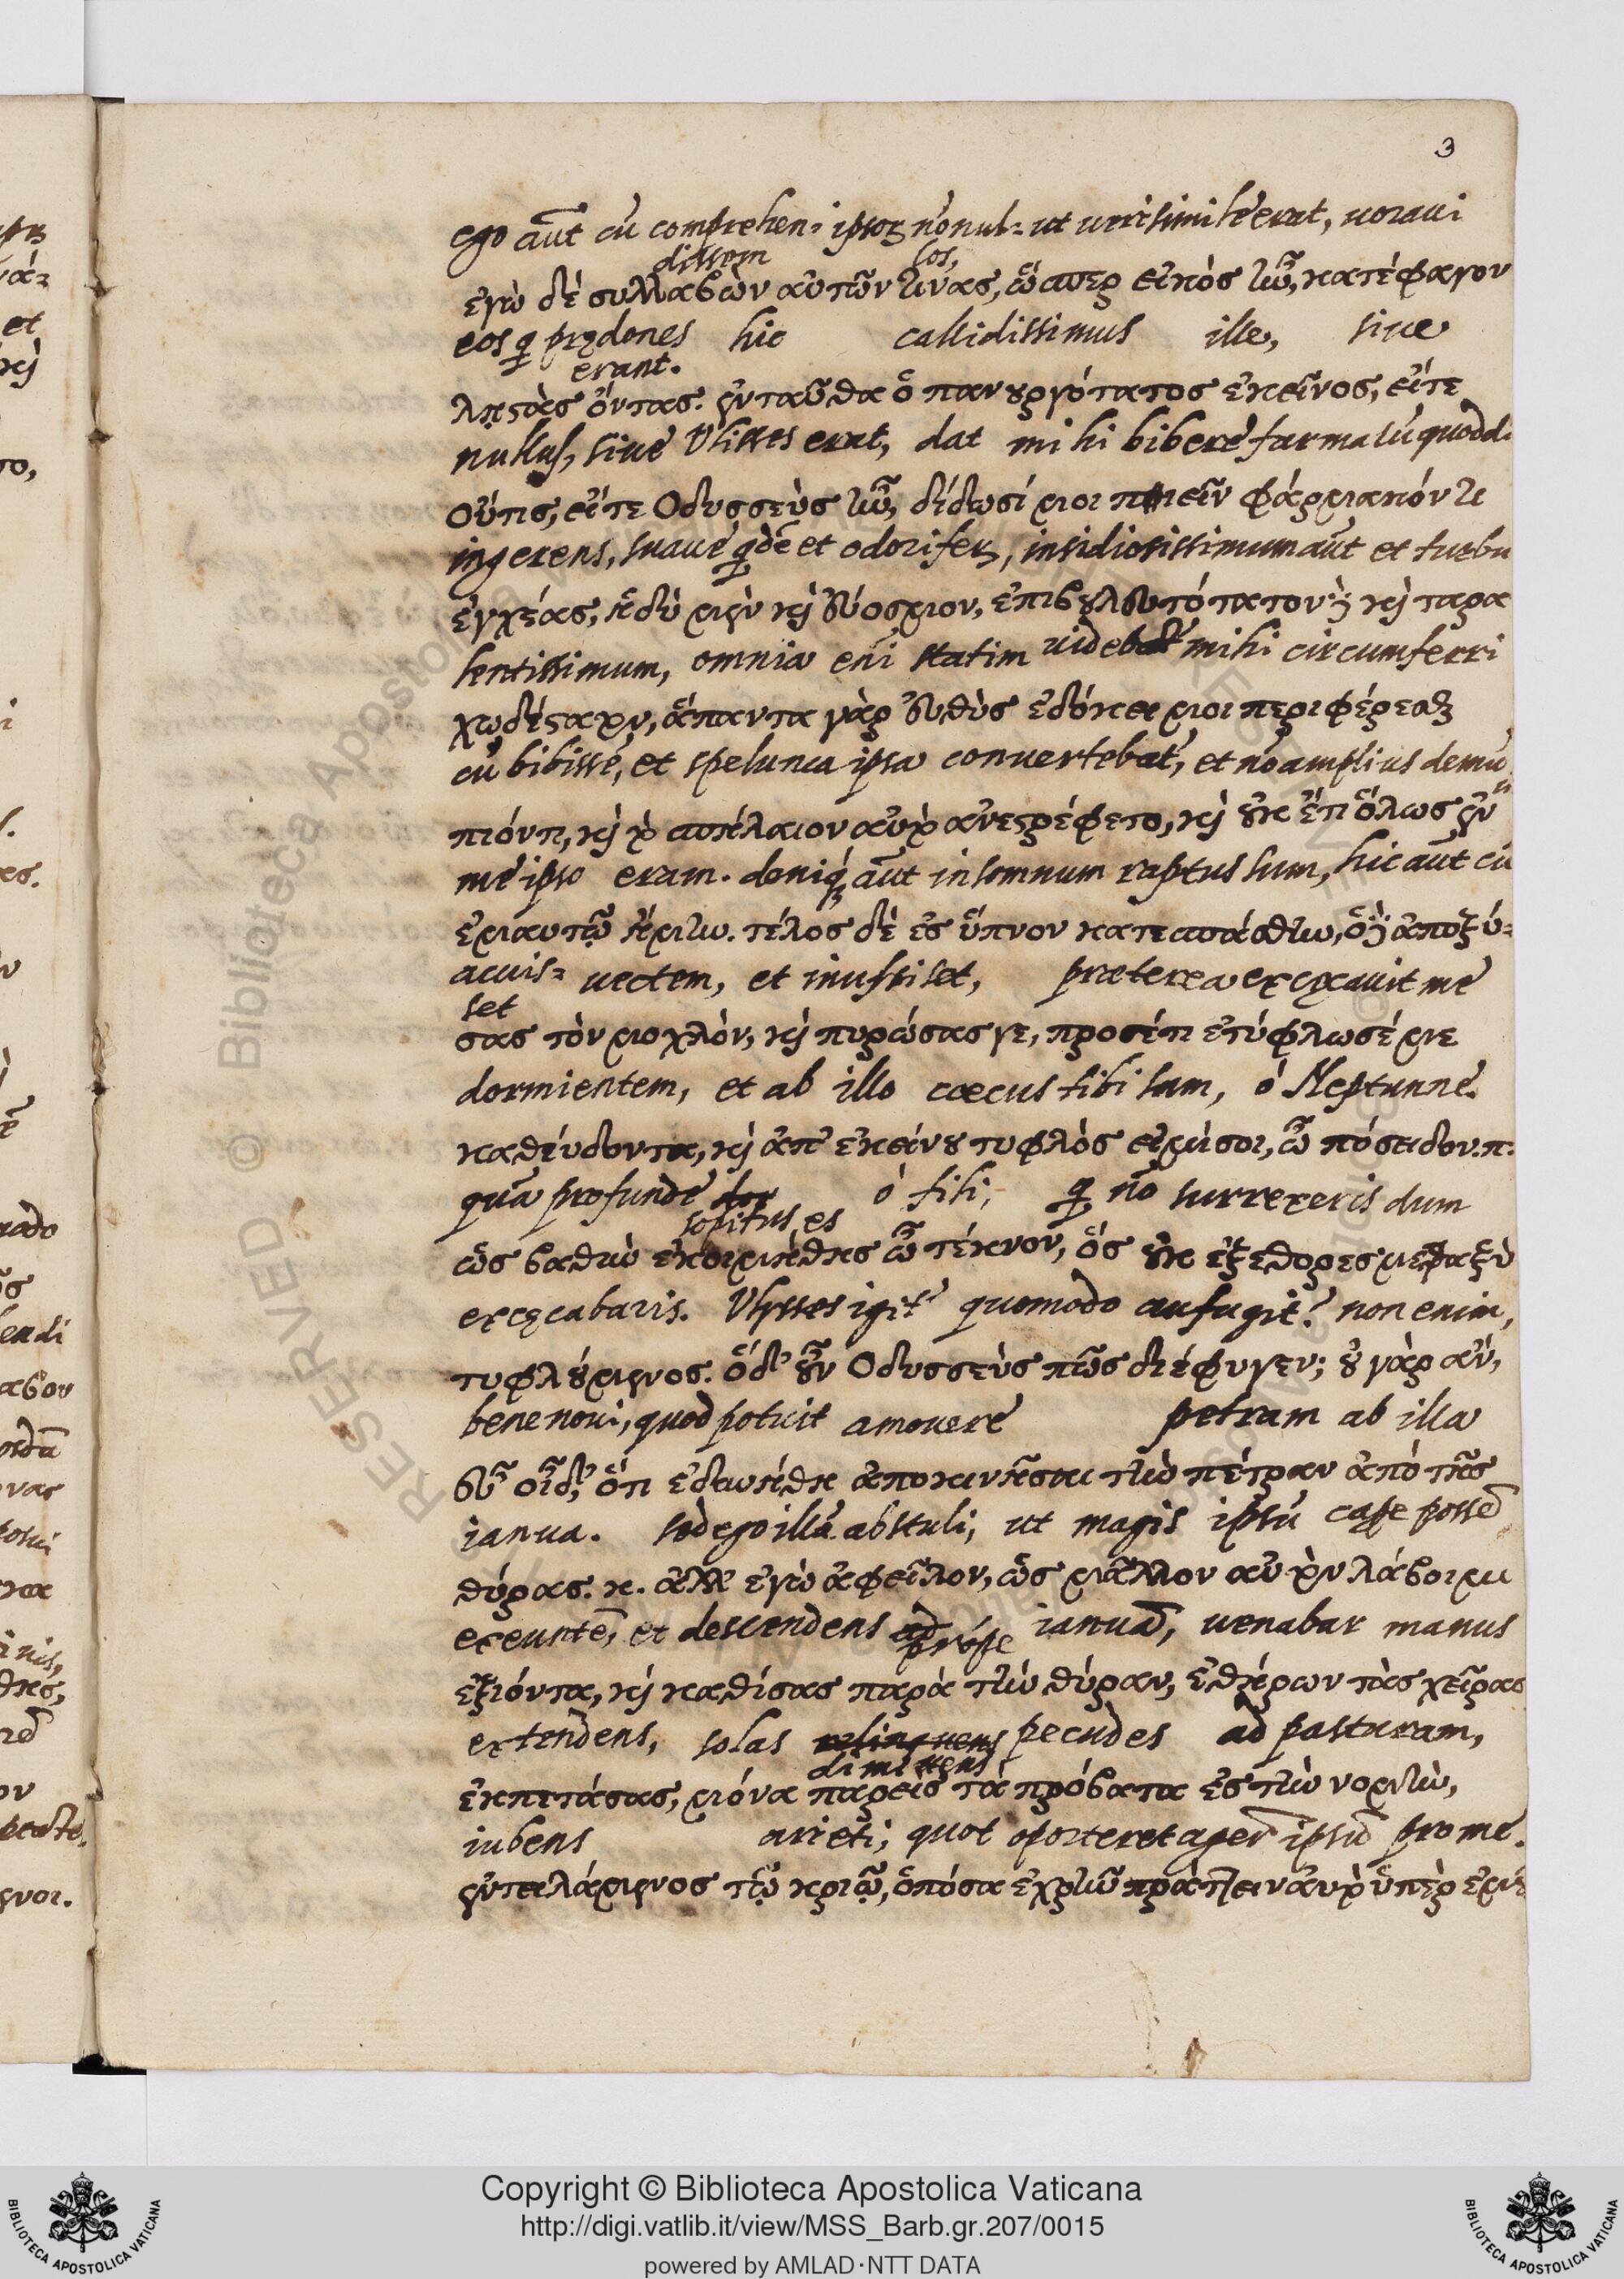 3
ego aut cu comprehen: ipsoꝝ nonul: ut uerisimile erat, uoraui
dissem los,
ἐγὼ δὲ συλλαβὼν αὐτῶν τινὰς, ὥσπερ εἰκὸς ἦν, κατέφαγον
eos q prędones hic callidissimus ille, siue
erant.
λῃστὰς ὄντας. ἐνταῦθα ὁ πανουργότατος ἐκεῖνος, εἴτε
nullus, siue Ulisses erat, dat mihi bibere farmacu quodd.
Οὖτις, εἴτε Ὀδυσσεὺς ἦν, δίδωσί μοι πιεῖν φάρμακόν τι
ingerens, suaue qde et odorifeꝝ, insidiosissimum aut et turbu
ἐγχέας, ἡδὺ μὲν καὶ εὔοσμον, ἐπιβουλευτότατον δὲ καὶ ταρα
lentissimum, omnia eni statim uidebat mihi circumferri
χωδέστατον, ἅπαντα γὰρ εὐθὺς ἐδόκει μοι περιφέρεσθαι
cu bibisse, et spelunca ipsa conuertebat, et no amplius demu
πιόντι, καὶ τὸ σπήλαιον αὐτὸ ἀνεστρέφετο, καὶ οὐκ ἔτι ὅλως ἐν
me ipso eram. deniq aut in somnum raptus sum, hic aut cu
ἐμαυτῷ ἤμην. τέλος δὲ ἐς ὕπνον κατεσπάσθην, ὁ δὲ ἀποξύ-
acuis- uectem, et inussiset, præterea excęcauit me
set
σας τὸν μοχλὸν, καὶ πυρώσας γε, προσέτι ἐτύφλωσέ με
dormientem, et ab illo cæcus tibi sum, ó Neptunne.
καθεύδοντα, καὶ ἀπ' ἐκείνου τυφλὸς εἰμὶ σοι, ὦ πόσειδον. π.
qua profunde dor ó fili, q no surrexeris dum
sopitus es
ὡς βαθὺν ἐκοιμήθης ὦ τέκνον, ὃς οὐκ ἐξέθορες μεταξὺ
excęcabaris. Ulysses igit quomodo aufugit? non enim,
τυφλούμενος. ὁ δ' οὖν Ὀδυσσεὺς πῶς διέφυγεν; οὐ γὰρ ἂν,
bene noui, quod potuit amouere petram ab illa
εὖ οἶδ', ὅτι ἐδυνήθη ἀποκινῆσαι τὴν πέτραν ἀπὸ τῆς
ianua. sed ego illa abstuli, ut magis ipsu cape posse
θύρας. κ. ἀλλ' ἐγὼ ἀφεῖλον, ὡς μᾶλλον αὐτὸν λάβοιμι
exeunte, et descendens ad ianua, uenabar manus
prope
ἐξιόντα, καὶ καθίσας παρὰ τὴν θύραν, ἐθήρων τὰς χεῖρας
extendens, solas relinquens pecudes ad pasturam,
dimittens
ἐκπετάσας, μόνα παρεὶς τὰ πρόβατα ἐς τὴν νομὴν,
iubens arieti, quot oporteret agere ipsu pro me.
ἐντειλάμενος τῷ κριῷ, ὁπόσα ἐχρῆν πράττειν αὐτὸ ὑπὲρ ἐμοῦ
RESERVED © Biblioteca Apostolica
Copyright © Biblioteca Apostolica Vaticana
http://digi.vatlib.it/view/MSS_Barb.gr.207/0015
powered by AMLAD·NTT DATA
BIBLIOTECA APOSTOLICA VATICANA
BIBLIOTECA APOSTOLICA VATICANA